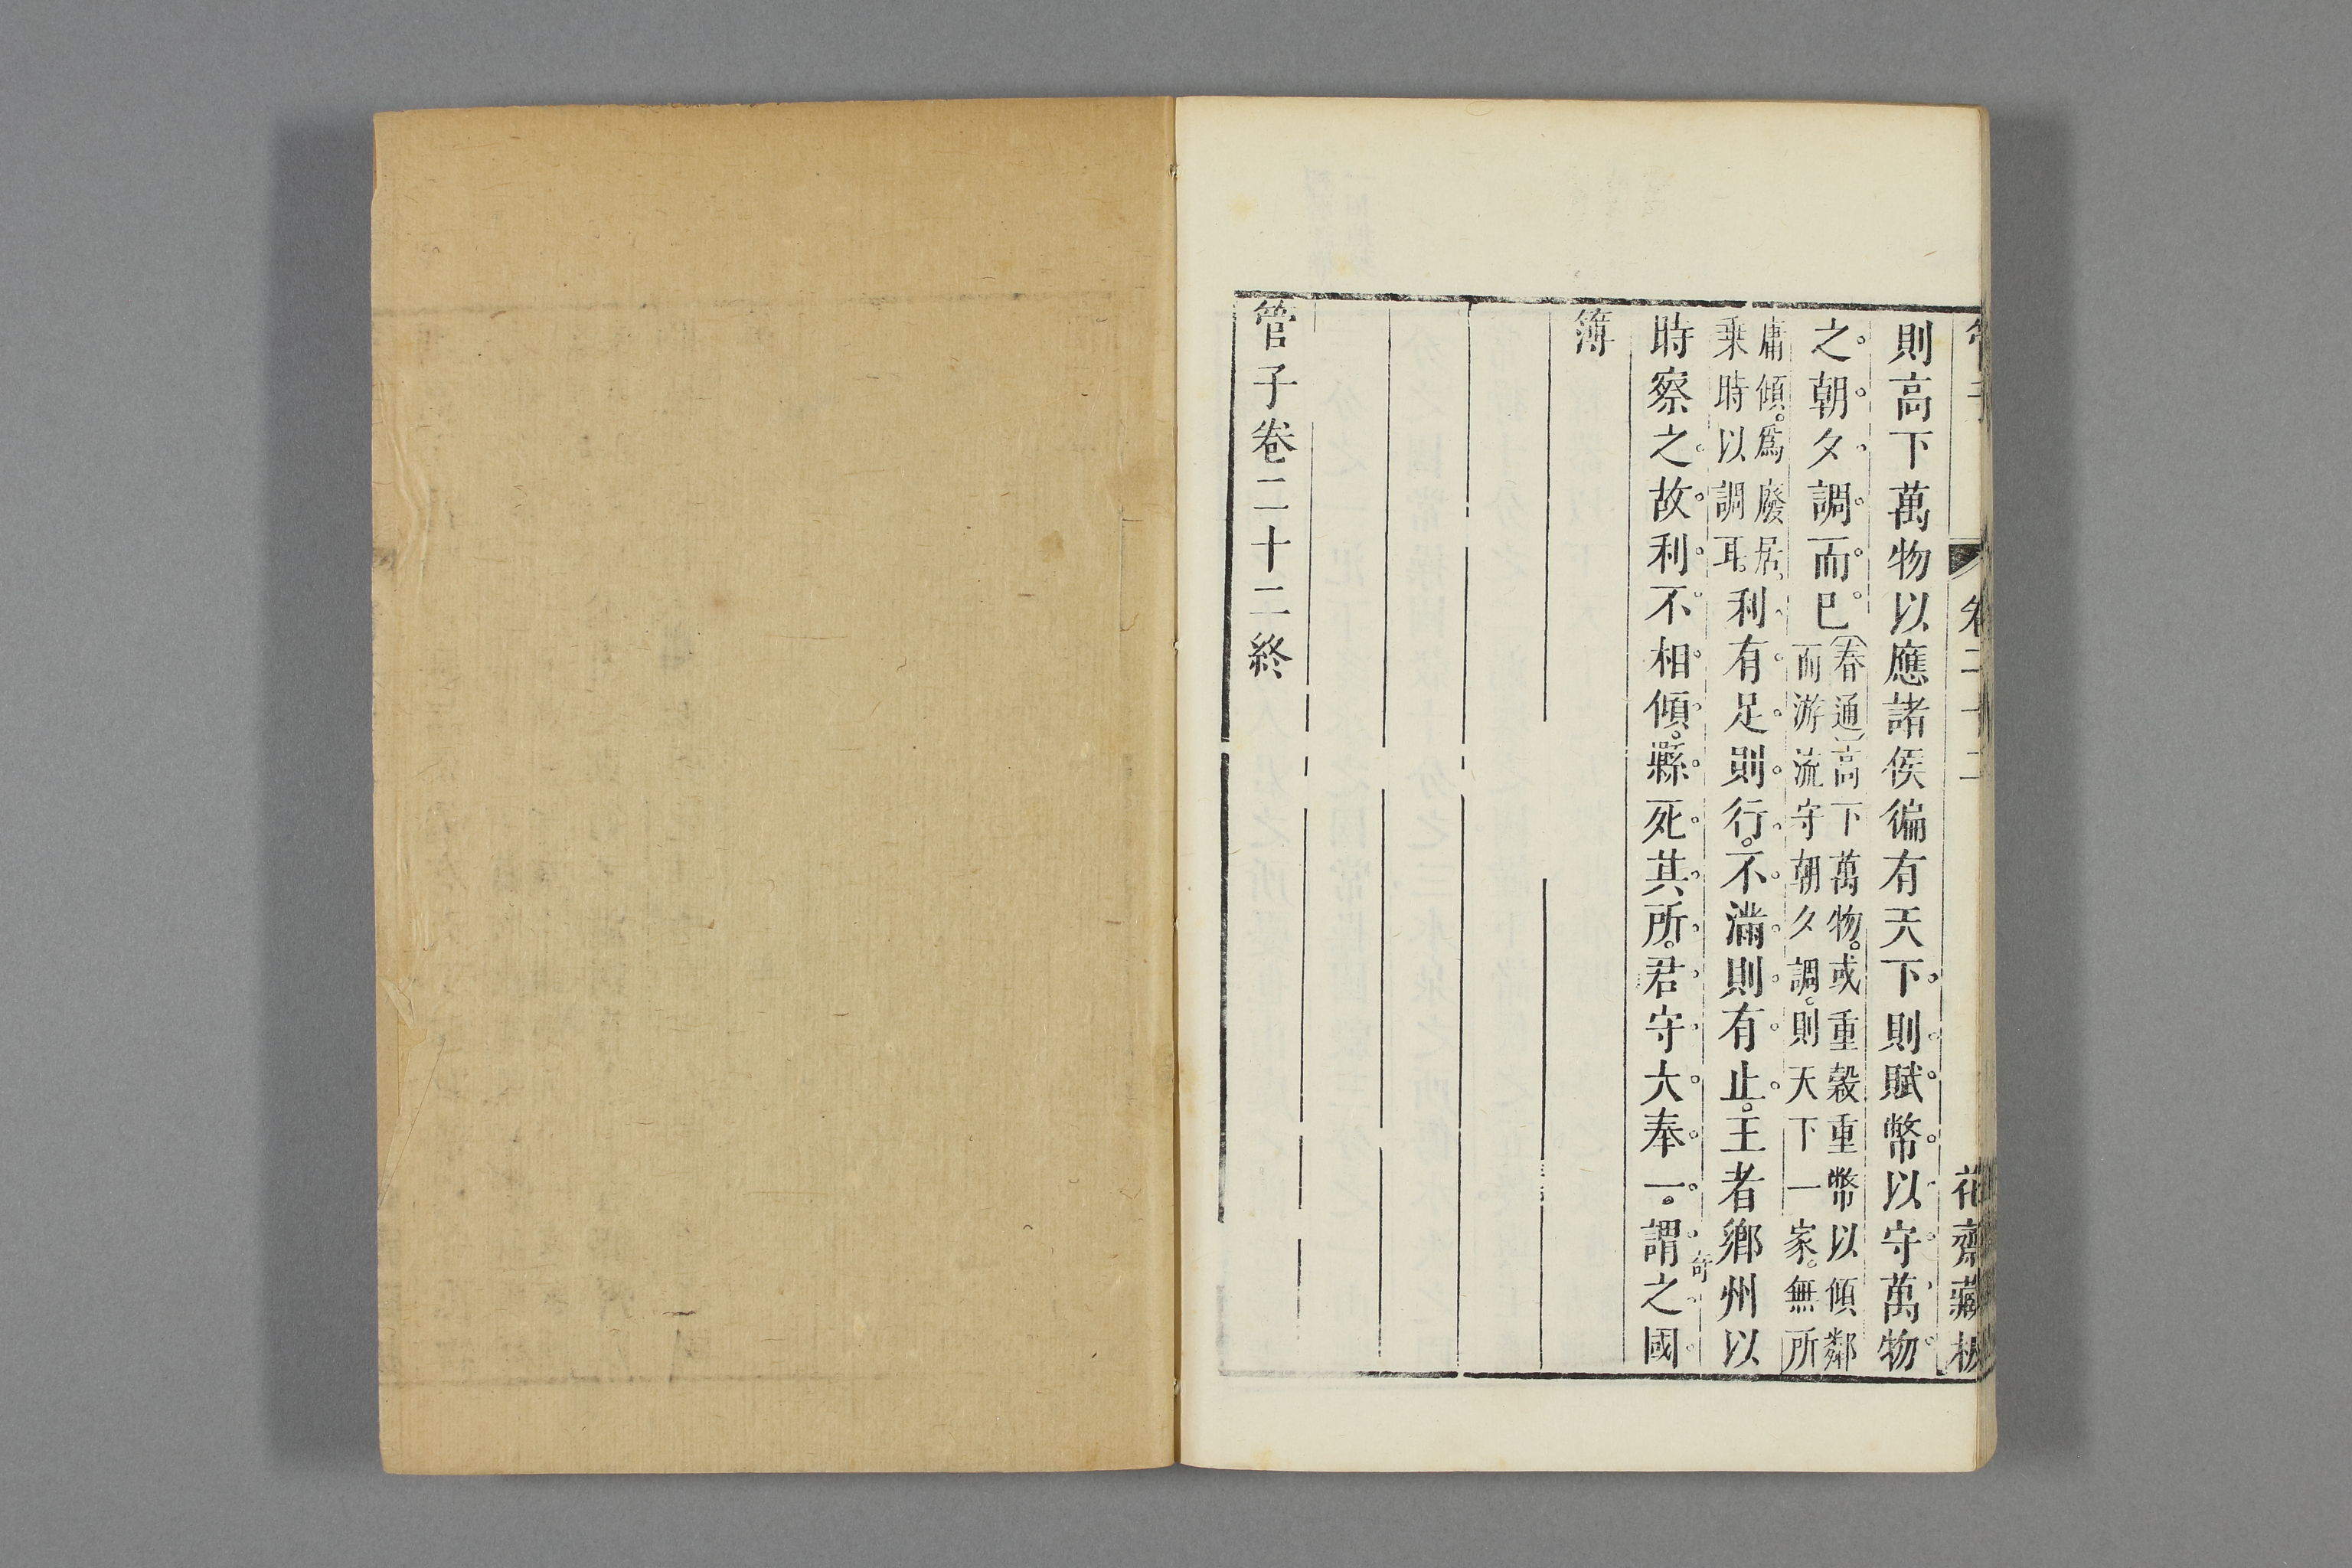 管子 卷二十二 花齋藏板
則高下萬物以應諸侯徧有天下則賦幣以守萬物
之朝夕調而已春通高下萬物。或重穀重幣以傾鄰
而游流守朝夕調。則天下一家。無所
庸傾。爲廢居。
乗時以調耳。利有足則行。不滿則有止。王者鄉州以
時察之故利不相傾。縣死其所。君守大奉一。謂之國
奇
簿
管子卷二十二終